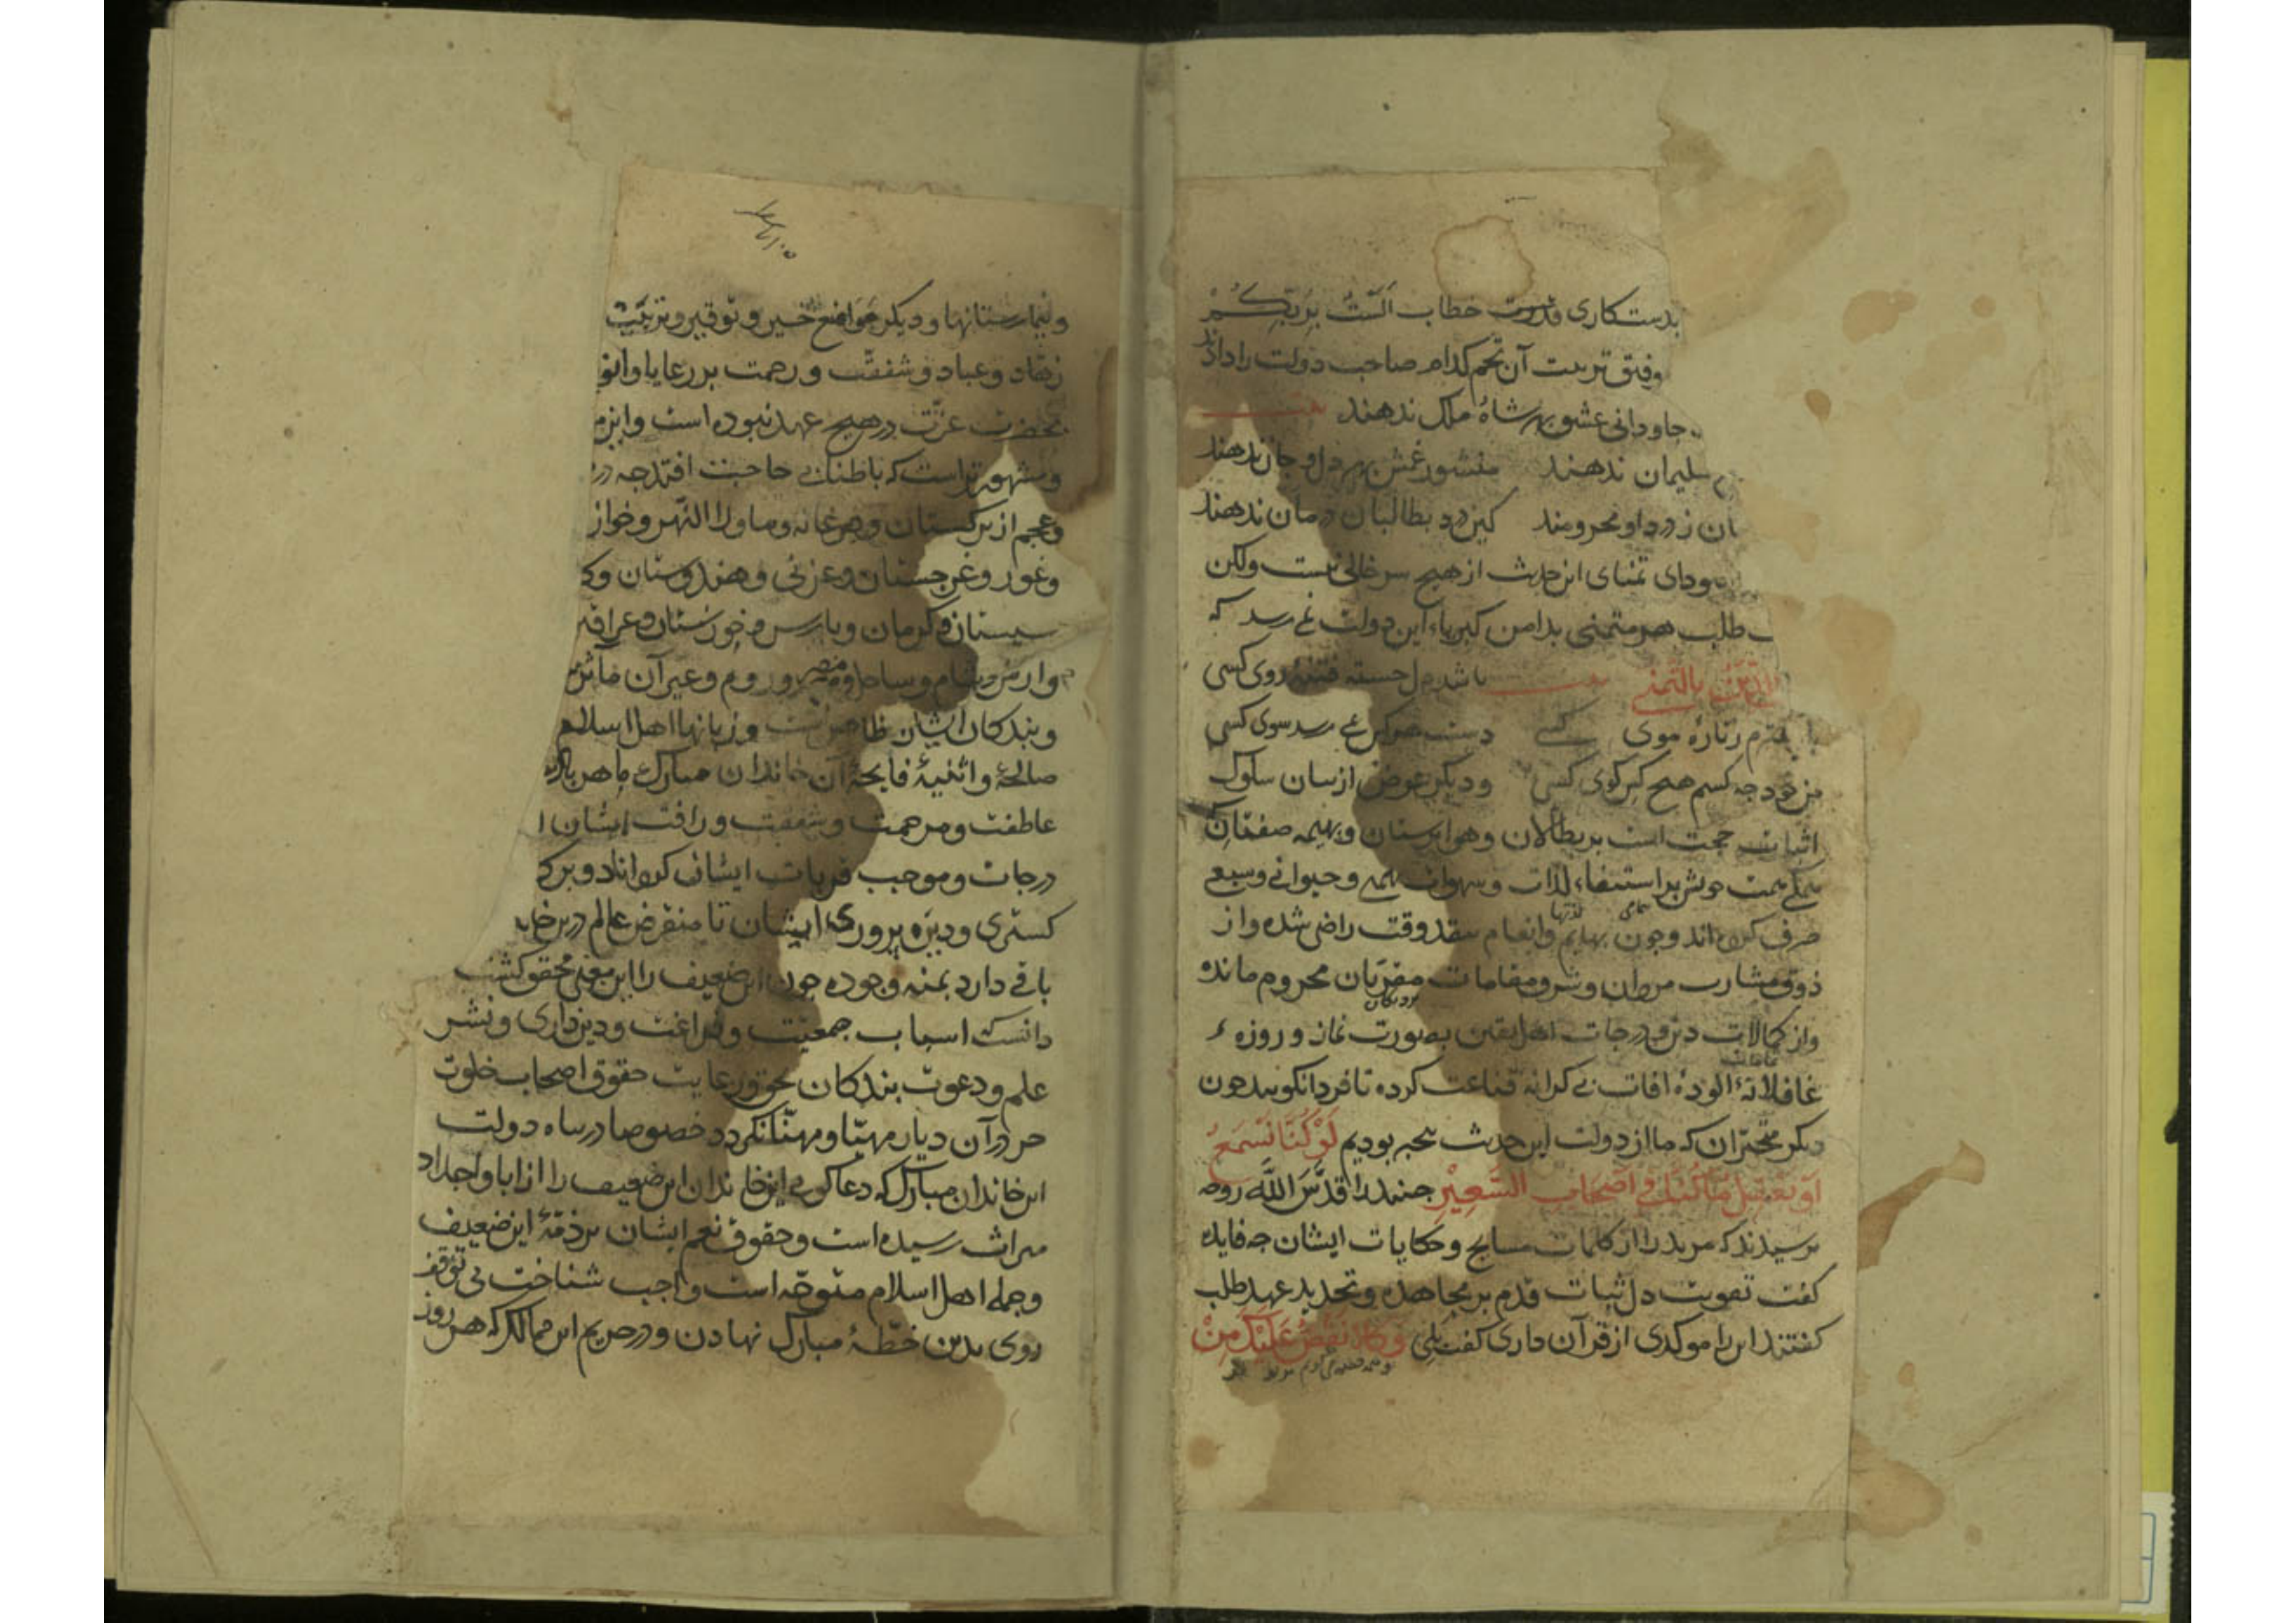 بدستکاری قدرت خطاب اَلَسْتُ بِرَبِّكُمْ
وفتق تربیت آن تخم کدام صاحب دولت را داده‌اند
جاودانی عشق بهر شاه ملک ندهند بیت
سلیمان ندهند منشور غمش بهر دل و جان ندهند
ان ز درد او محرومند کین درد بطالبان درمان ندهند
سودای تمنای این حدیث از هیچ سر خالی نیست ولکن
طلب هر متمنی بدامن کبریاء این دولت نمی رسد که
الدین بالتمنی بیت باشد دل خسته فتنهٔ روی کسی
زتارهٔ موی کسی دست هر کس نمی رسد سوی کسی
من خود چه کسم هیچ کس کوی کسی و دیگر غرض از بیان سلوک
اثبات حجت است بر بطالان و هواپرستان و بهیمه صفتان که
همکی همت خویش بر استیفاء لذات و شهوات بهیمی و حیوانی و سبعی
صرف کرده‌اند و چون بهایم و انعام بنقد وقت راضی شده و از
ذوق مشارب مردان و شرف مقامات مقربان محروم مانده
واز کمالات دین و درجات اهل یقین بصورت نماز و روزه
غافلانهٔ آلودهٔ آفات بی کرانه قناعت کرده تا فردا نکویند چون
دیکر متحیران که ما از دولت این حدیث بیخبر بودیم لَوْ كُنَّا نَسْمَعُ
اَوْ نَعْقِلُ مَا كُنَّا فِي اَصْحَابِ السَّعِيرِ جنید را قَدَّسَ اللَّه روحه
پرسیدند که مرید را از کلمات مشایخ و حکایات ایشان چه فایده
کفت تقویت دل ثبات قدم بر مجاهده و تجدید عهد طلب
کفتند این را موکدی از قرآن داری کفت بلی وَكُلًّا نَقُصُّ عَلَيْكَ مِنْ
وبیمارستانها و دیکر مواضع خیر و توقیر و تربیت
زهاد و عباد و شفقت و رحمت بر رعایا و
بحضرت عزت در هیچ عهد نبوده است و این
و مشهورتر است که باطناب حاجت افتد چه در
وعجم از ترکستان و فرغانه و ماوراالنهر و خوارز
وغور و غرجستان و غزنی و هندوستان و
سیستان و کرمان و پارس و خوزستان و عراق
وارمن و شام و ساحل و مصر و روم و غیر آن مآثر
و بندکان ایشان ظاهرست و زبانها اهل اسلام
صالحه و اثنیهٔ فایحهٔ آن خاندان مبارک ما هر
عاطفت و مرحمت و شفقت و رافت ایشان
درجات و موجب قربات ایشان کرداناد و
کستری و دین پروری ایشان تا منقرض عالم درین
باقی دارد بمنه وجوده چون این ضعیف را این معنی محقق کشت
دانست که اسباب جمعیت و فراغت و دین داری و نشر
علم و دعوت بندکان بحق و رعایت حقوق اصحاب خلوت
جز در آن دیار مهیّا و مهنّا نکردد خصوصا در پناه دولت
این خاندان مبارک که دعا کویی این خاندان این ضعیف را از ابا و اجداد
میراث رسیده است و حقوق نعم ایشان بر ذمّهٔ این ضعیف
وجمله اهل اسلام متوجّه است واجب شناخت بی توقف
روی بدین خطّهٔ مبارک نهادن و در حریم این ممالک که هر روز